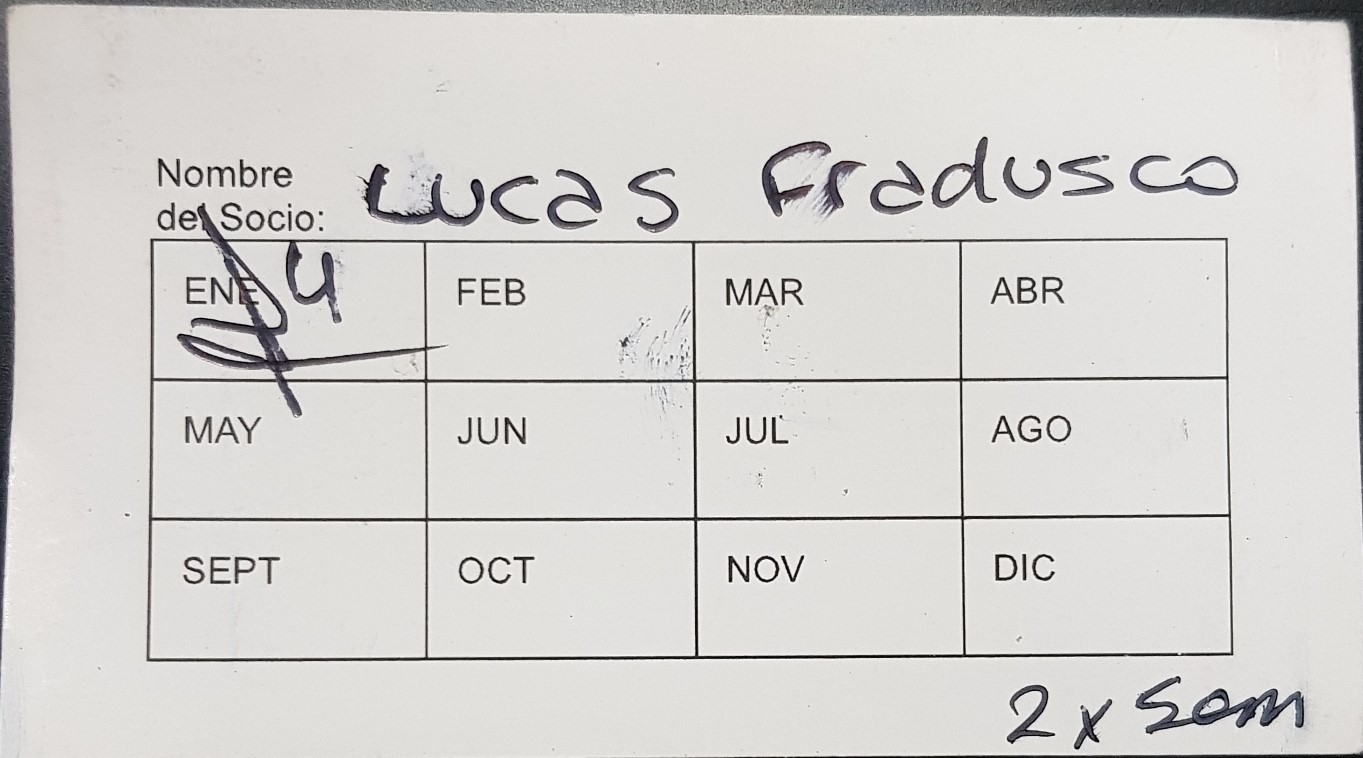 Nombre
del Socio: Lucas Fradusco
ENE FEB MAR ABR
MAY JUN JUL AGO
SEPT OCT NOV DIC
2 x Sem